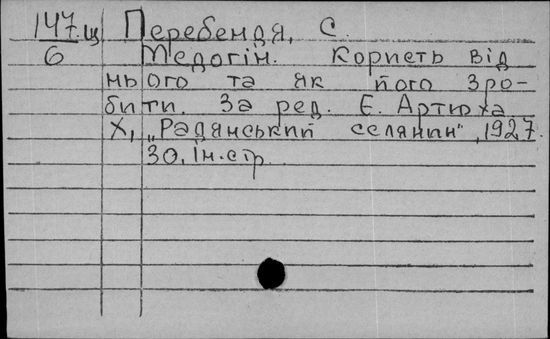 147.ц Перебендя, С.
6 Медогін. Користь від
нього та як його зро-
бити. За ред. Є. Артюха
Х, „Радянський селянин", 1927.
30, ін. стр.